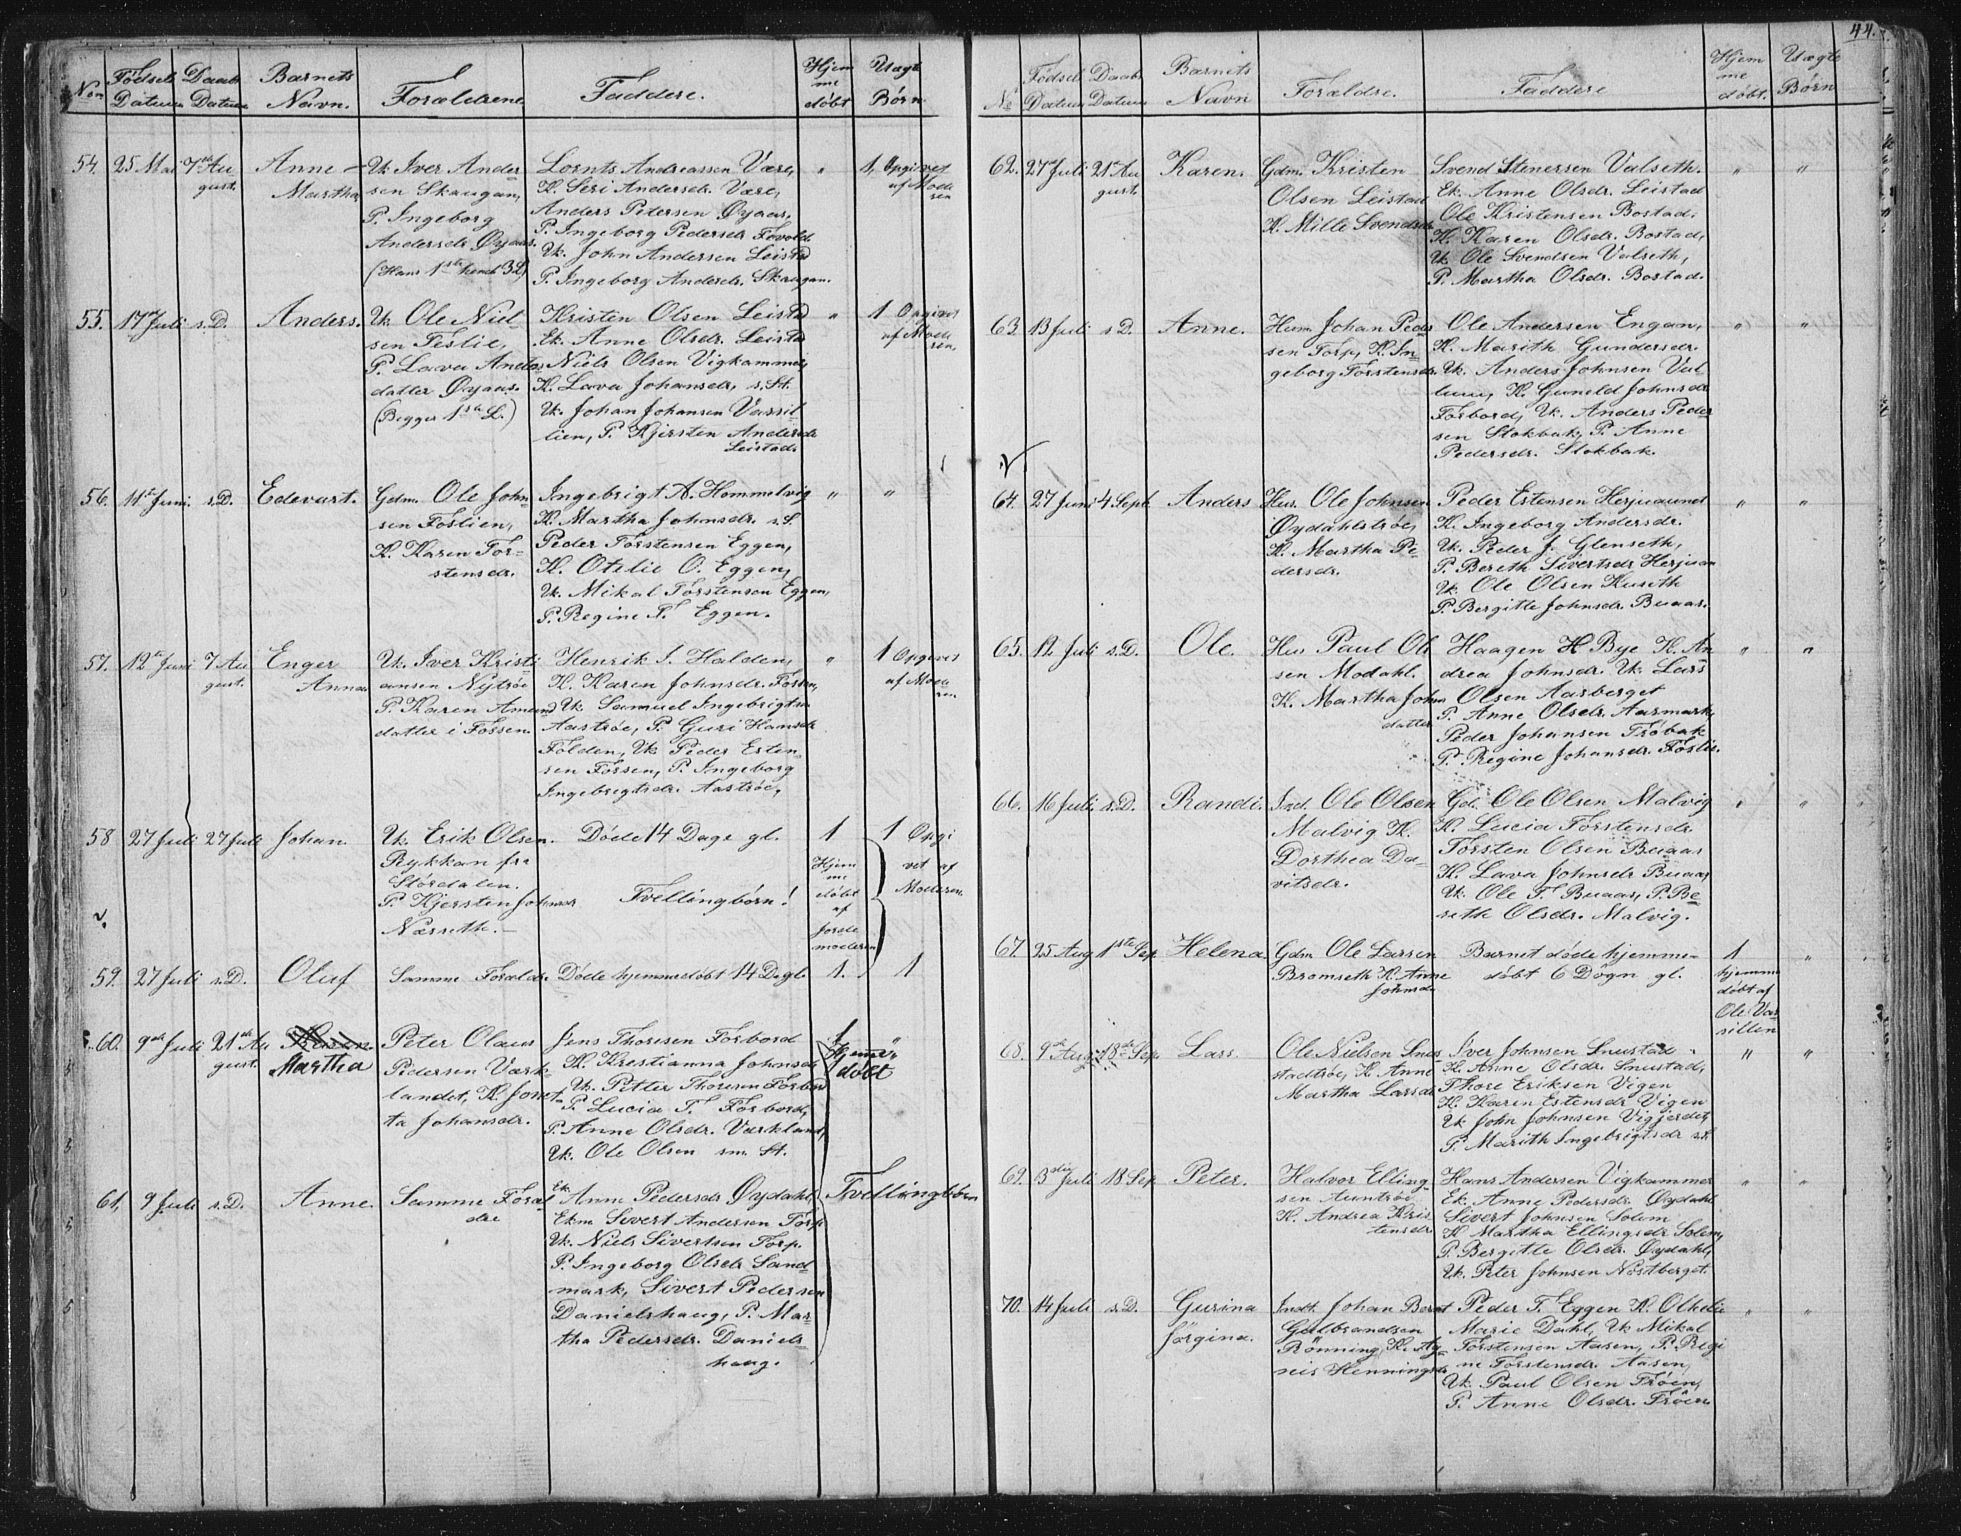 44.
Non
Fødsels Datum
Daabs Datum
Barnets Navn.
Forældrene
Faddere.
Hjemme døbt
Uægte Børn
54.
25 Mai
7de August.
Anne Martha
Uk. Iver Andersen Skaugan,
P. Ingeborg
Andersdr. Øyaas.
(Hans 1ste hendes 3 L)
Lornts Andreassen Være,
K. Seri Andersdr. Være,
Anders Petersen Øyaas,
P. Ingeborg Pedersdr. Fovold
Uk. John Andersen Leistad
P. Ingeborg Andersdr. Skaugan.
"
1, Opgivet af Moderen
55.
17de Juli
s.D.
Anders.
Uk. Ole Nielsen Feslie,
P. Lava Andersdatter Øyaas.
(Begges 1ste L.)
Kristen Olsen Leistad
Ek. Anne Olsdr. Leistad
Niels Olsen Vigkammer,
K. Lava Johansdr. s. St.
Uk. Johan Johansen Vassillien, P. Kjersten Andersdr.
Leistad.
"
1 Opgivet af Moderen.
56.
11te Juni
s.D.
Edevart.
Gdm. Ole Johnsen Foslien,
K. Karen Torstensdr.
Ingebrigt A. Hommelvig
K. Martha Johnsdr. s.S.
Peder Torstensen Eggen,
K. Otelie O. Eggen,
Uk. Mikal Torstensen Eggen,
P. Regine T. Eggen.
"
"
57.
12te Juni
7 August.
Enger Anna
Uk. Iver Kristiansen Nytrøe
P. Karen Amundsdatter i Fossen.
Henrik I. Halden,
K. Karen Johnsdr. Fossen,
Uk. Samuel Ingebrigtsen
Aastrøe, P. Guri Hansdr.
Folden, Uk. Peder Estensen Fossen, P. Ingeborg
Ingebrigtsdr. Aastrøe,
"
1 Opgivet af Moderen
58
27 Juli
27 Juli
Johan.
Uk. Erik Olsen.
Rykkan fra
Størdalen.
P. Kjersten Johnsdr
Næsseth.
Døde 14 Dage gl.
Tvellingbørn!
1
Hjemme døbt af Jordemoderen
1 Opgivet af Moderen.
59.
27 Juli
s.D.
Oluf
Samme Forældre
Døde hjemmedøbt 14 D. gl.
1.
1
60.
9de Juli
21de August.
Martha
Peter Olaus
Pedersen Værklandet, K. Jonetta Johansdr.
Jens Thoresen Forbord
K. Kristianna Johnsdr
Uk. Petter Thoresen Forbord
P. Lucia T. Forbord,
P. Anne Olsdr. Værkland,
Uk. Ole Olsen sm. St.
1
Hjemmedøbt
"
61.
9 Juli
s.D.
Anne.
Samme Forældre
Ek. Anne Pedersdr Øydahl,
Ekm Sivert Andersen Torp
Uk. Niels Sivertsen Torp.
P. Ingeborg Olsdr. Sandmark, Sivert Pedersen
Danielshaug, P. Martha Pedersdr. Danielshaug.
Tvellingbørn
№
Fødsels Datum
Daabs Datum
Barnets Navn
Forældre.
Faddere
Hjemme døbt.
Uægte Børn
62.
27 Juli
21de August.
Karen.
Gdm. Kristen
Olsen Leistad
K. Mille Svendsdr.
Svend Stenersen Valseth.
Ek. Anne Olsdr. Leistad
Ole Kristensen Bostad.
K. Karen Olsdr. Bostad,
Uk. Ole Svendsen Valseth,
P. Martha Olsdr. Bostad.
"
"
63.
13 Juli
s.D.
Anne.
Husm. Johan Pedersen Torp, K. Ingeborg Torstensdr.
Ole Andersen Engan,
K. Marith Gundersdr.
Uk. Anders Johnsen
K. Guneld Johnsdr
Forbord, Uk. Anders Pedersen Stokbak, P. Anne
Pedersdr. Stokbak.
"
"
64.
27 Juni
4 Sept.
Anders
Hus. Ole Johnsen
Øydahlstrøe,
K. Martha Pedersdr.
Peder Estensen Herjuaunet
K. Ingeborg Andersdr.
Uk. Peder J. Glenseth,
P. Bereth Sivertsdr Herjuan
Uk. Ole Olsen Kuseth
P. Bergitte Johnsdr. Buaas.
"
"
65.
12 Juli
s.D.
Ole.
Hus Paul Olsen Modahl.
K. Martha Johnsdatter
Haagen H Bye K. Andrea Johnsdr. Uk. Lars
Olsen Aasberget
P. Anne Olsdr. Aasmark,
Peder Johansen Trøbak
P. Regine Johansdr. Foslie.
"
"
66.
16 Juli
s.D.
Randi.
Ind. Ole Olsen
Malvig K.
Dorthea Davitsdr.
Gd. Ole Olsen Malvig
K. Lucia Torstensdr.
Torsten Olsen Buaas
K. Lava Johnsdr Buaas,
Uk. Ole T. Buaas, P. Bereth Olsdr. Malvig.
"
"
67.
25 Aug
1ste Sep.
Helena.
Gdm Ole Larsen
Bromseth K. Anne
Johnsdr
Barnet døde hjemmedøbt 6 Døgn gl.
1
hjemmedøbt af
Ole Vassillen
"
68.
9de Aug
18de Sep.
Lars.
Ole Nielsen Snustadtrøe, K. Anne
Martha Larsdr
Iver Johnsen Snustad
K. Anne Olsdr. Snustad,
Thore Eriksen Vigen
K. Karen Estensdr Vigen
Uk John Johnsen Vigjerdet,
P. Marith Ingebrigtsdr s.S.
"
"
69.
3die Juli
18 Sep
Peter.
Halvor Ellingsen Auntrøe,
K. Andrea Kristensdr
Hans Andersen Vigkammer
Ek. Anne Pedersdr. Øydahl
Sivert Johnsen Solem
K. Martha Ellingsdr Solem,
P. Bergitte Olsdr. Øydahl,
Uk. Peter Johnsen Nøstberget.
"
"
70.
14 Juli
s.D.
Gurina Jørgina.
Indt. Johan Bernt
Gulbrandsen
Rönning, K. Agneis Henningsdr
Peder T. Eggen K. Othelie
Marie Dahl, Uk Mikal
Torstensen Aasen, P. Regine Torstensdr. Aasen,
Uk. Paul Olsen Trøen,
P. Anne Olsdr. Trøen.
"
"